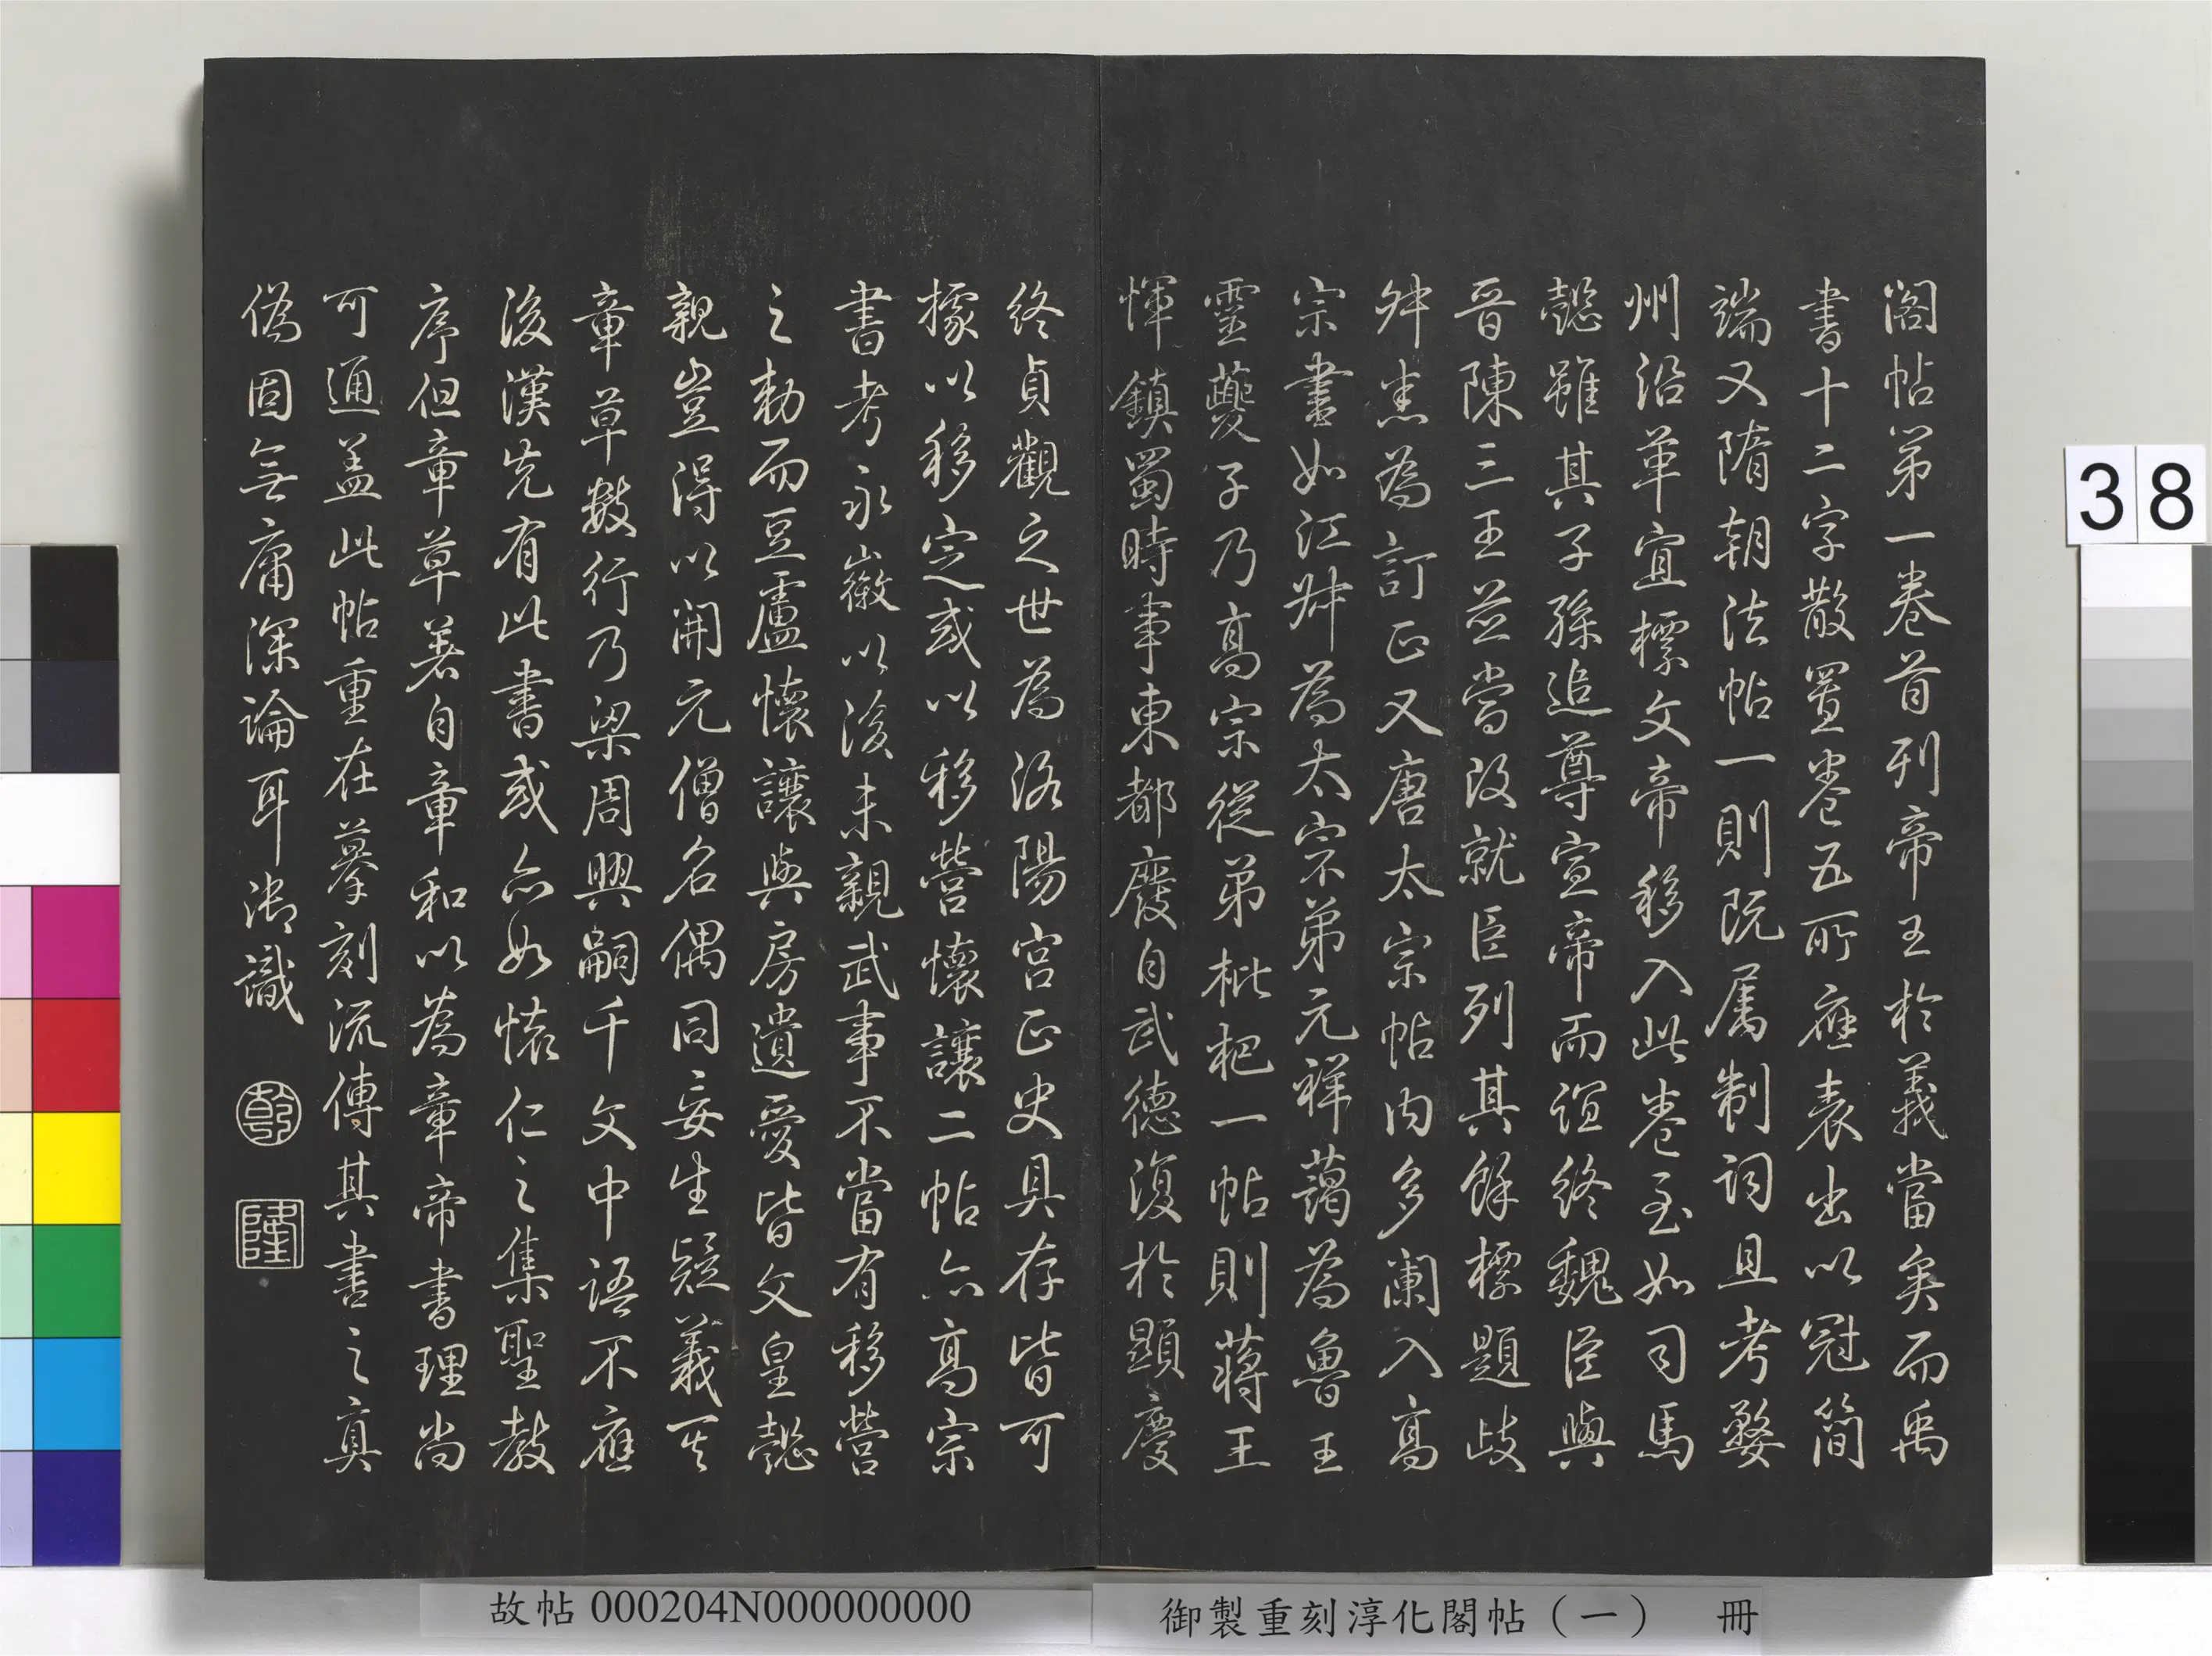 閣帖第一卷首列帝王於義當矣而禹
書十二字散置卷五所應表出以冠簡
端又隋朝法帖一則既属制詞且考婺
州沿革宜標文帝移入此卷至如司馬
懿雖其子孫追尊宣帝而誼終魏臣與
晉陳三王並當改就臣列其餘標題歧
舛悉為訂正又唐太宗帖内多闌入高
宗書如江叔為太宗弟元祥藹為魯王
靈夔子乃高宗從弟枇杷一帖則蔣王
惲鎮蜀時事東都廢自武德復於顯慶
終貞觀之世為洛陽宮正史具存皆可
據以移定或以移營懷讓二帖亦高宗
書考永徽以後未親武事不當有移營
之勅而豆盧懷讓與房遺愛皆文皇懿
親豈得以開元僧名偶同妄生疑義其
章草數行乃梁周興嗣千文中語不應
後漢先有此書或亦如懷仁之集聖教
序但章草著自章和以為章帝書理尚
可通盖此帖重在摹刻流傳其書之真
偽固無庸深論耳御識
乾
隆
38
故帖 000204N000000000
御製重刻淳化閣帖（一） 冊